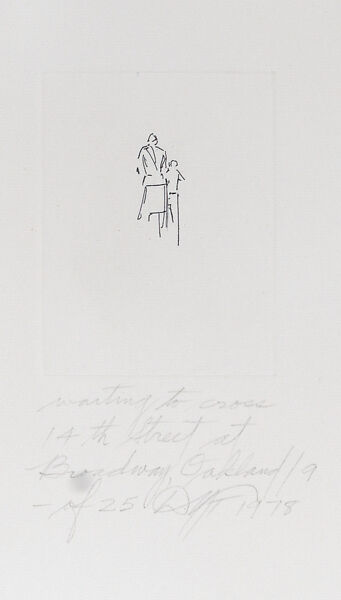 waiting to cross
14th Street at
Broadway, Oakland / 9
- of 25 1978